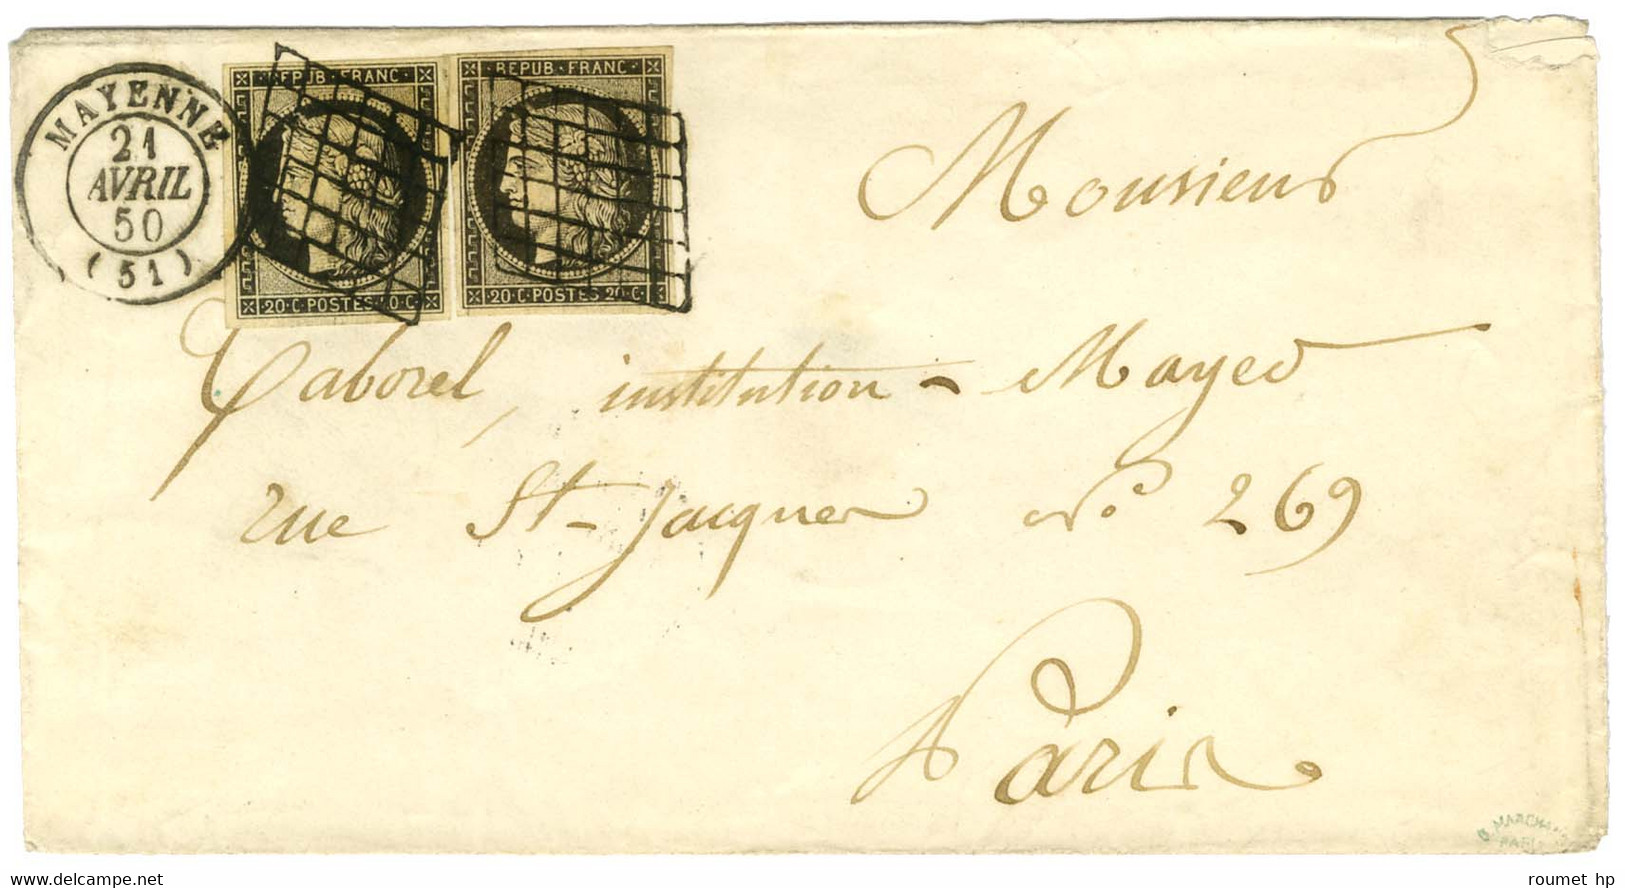 MAYENNE
21
AVRIL
50
(51)
REPUB·FRANC
20·C·POSTES·20·C
REPUB·FRANC
20·C·POSTES·20·C
Monsieur
Taborel, institution Mayer
rue St-Jacques N° 269
Paris
www.delcampe.net
roumet hp